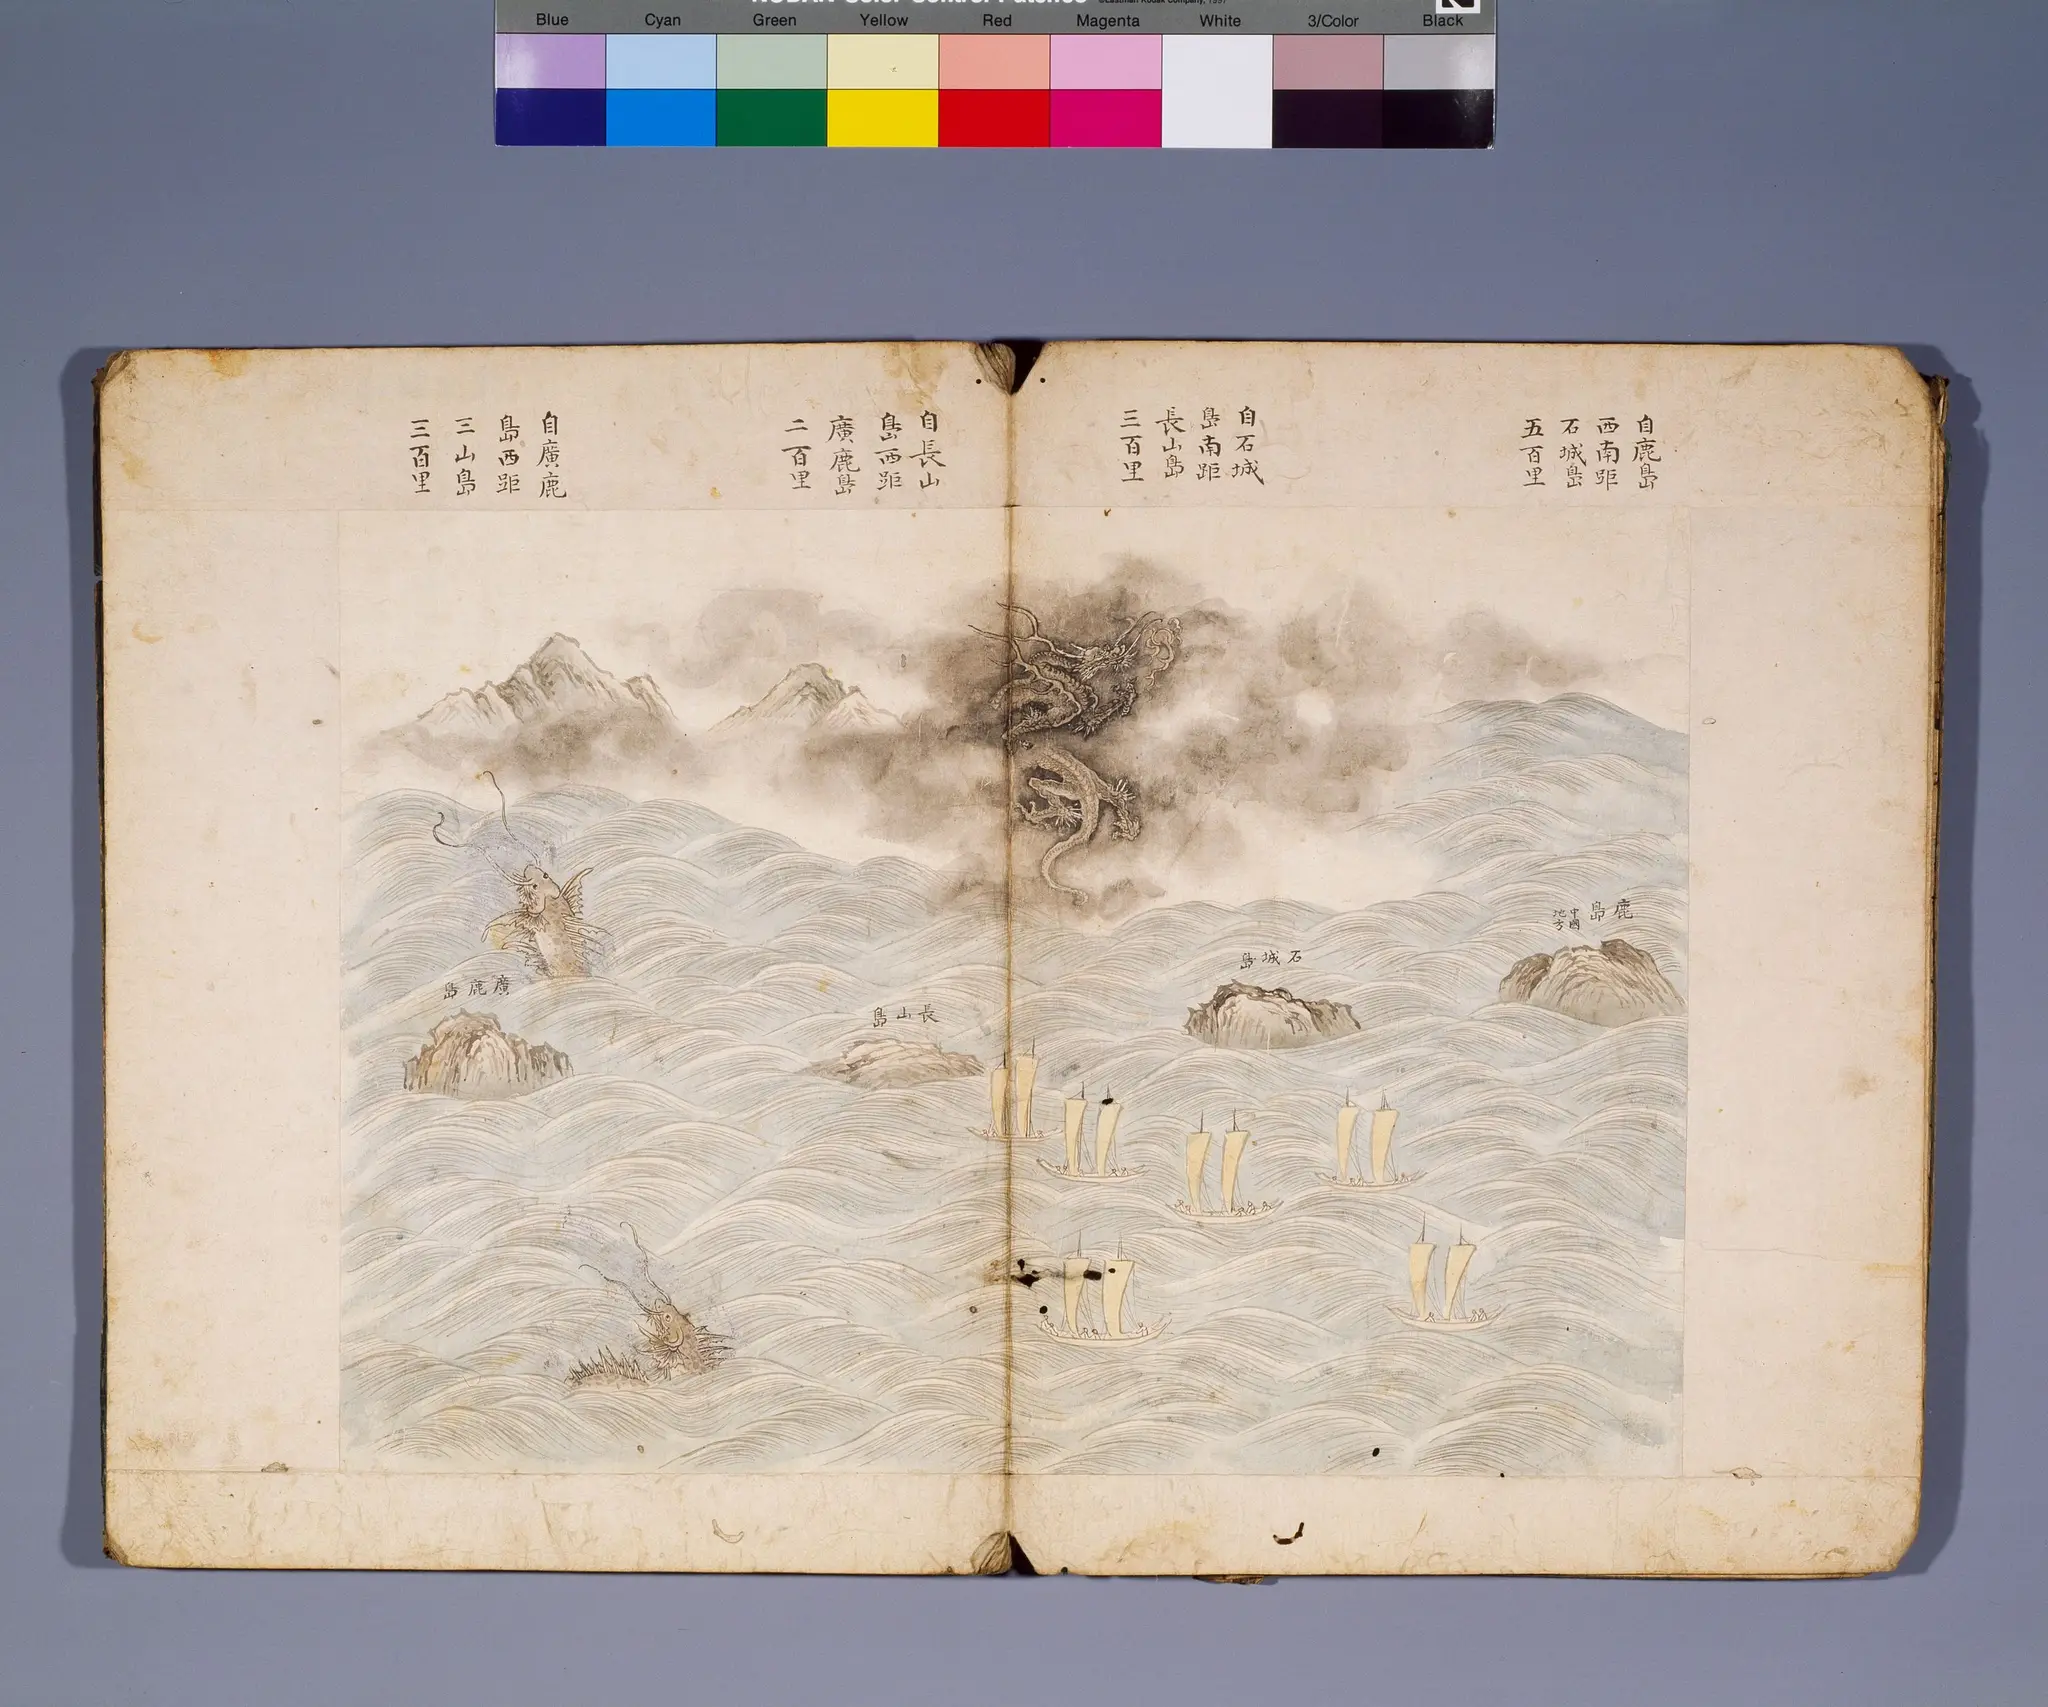 Blue Cyan Green Yellow Red Magenta White 3/Color Black
自鹿島
西南距
石城島
五百里
自石城
島南距
長山島
三百里
自長山
島西距
廣鹿島
二百里
自廣鹿
島西距
三山島
三百里
鹿島
中國
地方
石城島
長山島
廣鹿島